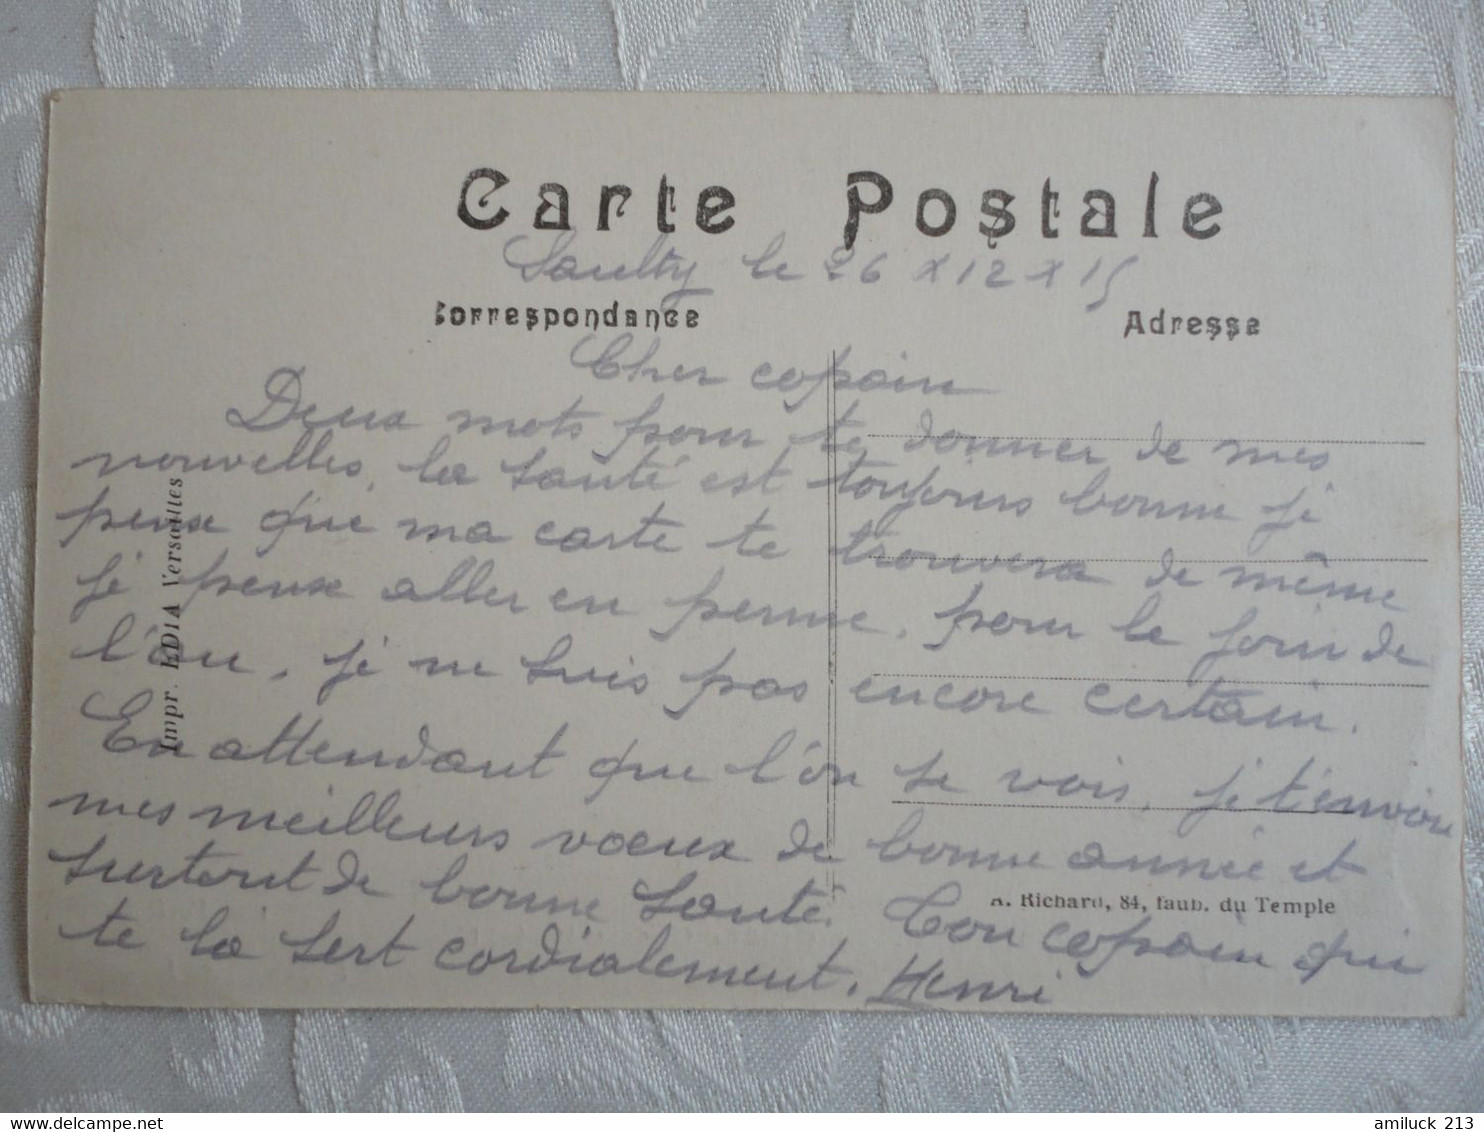 Carte Postale
Saulty le 26 x 12 x 15
Correspondance
Adresse
Cher copain
Deux mots pour te donner de mes
nouvelles, la santé est toujours bonne je
pense que ma carte te trouvera de même
je pense aller en perme, pour le join de
l'an, je ne suis pas encore certain.
En attendant que l'on se vois, je t'envoie
mes meilleurs voeux de bonne année et
surtout de bonne santé. Ton copain qui
te la sert cordialement. Henri
Impr. EDIA Versailles
A. Richard, 84, faub. du Temple
amiluck 213